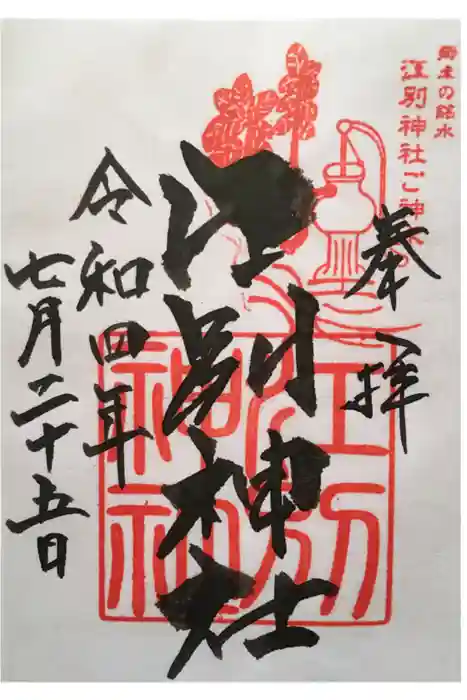 銘水
江別神社ご神水
奉拝
江別神社
江別
神社
令和四年
七月二十五日